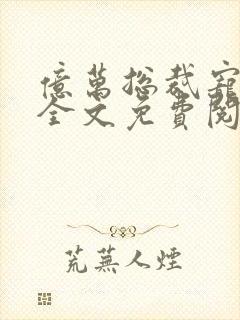 億萬總裁寵
全文免費閱
荒蕪人煙